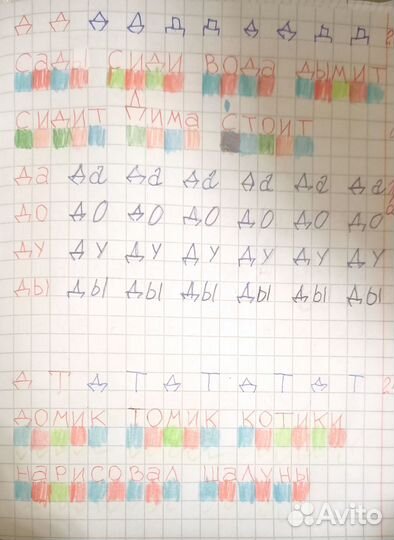 Д Д Д Д Д Д Д Д Д Д
сады сиди вода дымит
сидит Дима стоит
да да да да да да да
до до до до до до до
ду ду ду ду ду ду ду
ды ды ды ды ды ды ды
Д Т Д Т Д Т Д Т Д Т
домик томик котики
нарисовал шалуны
Avito